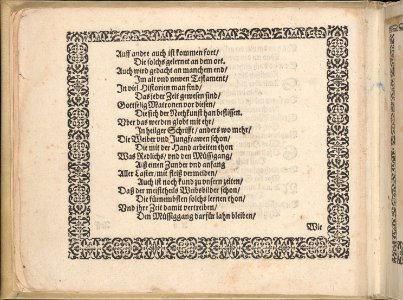 Auff andre auch ist kommen fort/
Die solchs gelernt an dem ort.
Auch wird gedacht an manchem end/
Im alt vnd newen Testament/
In viel Historien man find/
Das jeder Zeit gewesen sind/
Gottselig Matronen vor diesen/
Die sich der Nethkunst han beflissen.
Vber das werden globt mit ehr/
In heilger Schrifft/ anders wo mehr/
Die Weiber vnd Jungfrawen schon/
Die mit der Hand arbeiten thon
Was Redlichs/ vnd den Müssigang/
Alß einen Zunder vnd anfang
Aller Laster/ mit fleiß vermeiden/
Auch ist noch kund zu vnsern zeiten/
Daß der meistetheils Weibsbilder schon/
Die fürnembsten solchs lernen thon/
Vnd jhre Zeit damit vertreiben/
Den Müssiggang darfür lahn bleiben/
Wie